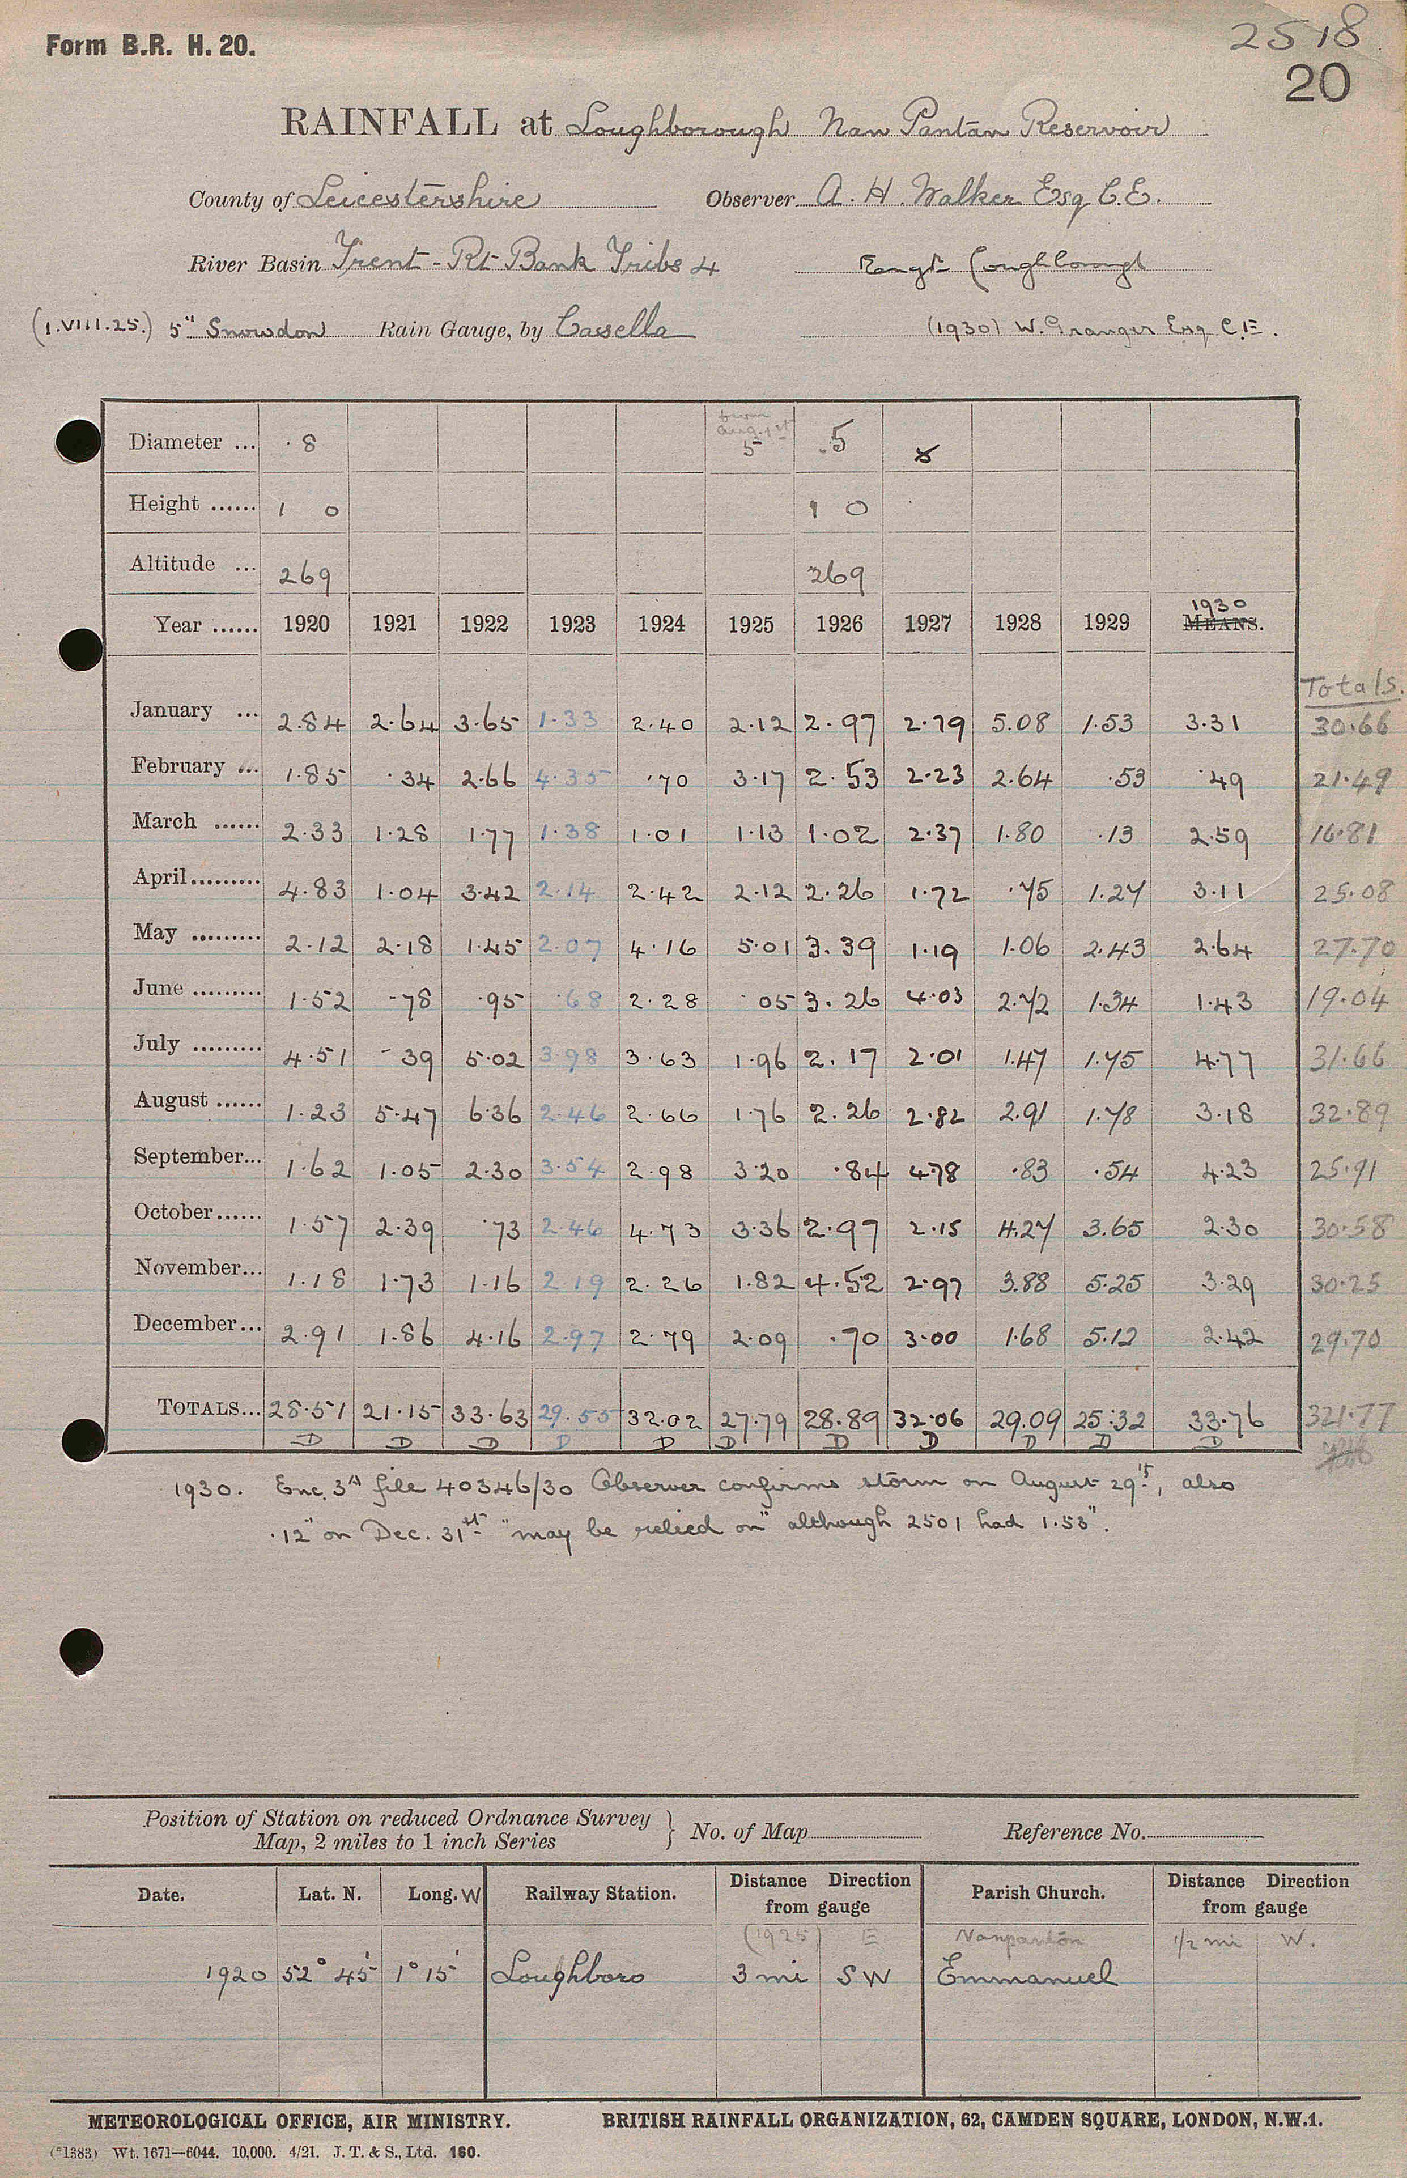 Form B.R. H. 20.
2518
20
RAINFALL at Loughborough Nan Pantan Reservoir
County of Leicestershire Observer A. H. Walker Esq C.E.
River Basin Trent - Rt Bank Tribs 4 Loughborough
(1.VIII.25.) 5" Snowdon Rain Gauge, by Casella (1930) W. Granger Esq C.E.
Diameter ... 8 from Aug. 1st 5 5 8
Height ...... 1 0 1 0
Altitude ... 269 269
Year ...... 1920 1921 1922 1923 1924 1925 1926 1927 1928 1929 1930 MEANS.
Totals.
January ... 2.84 2.64 3.65 1.33 2.40 2.12 2.97 2.79 5.08 1.53 3.31 30.66
February ... 1.85 .34 2.66 4.35 .70 3.17 2.53 2.23 2.64 .53 .49 21.49
March ...... 2.33 1.28 1.77 1.38 1.01 1.13 1.02 2.37 1.80 .13 2.59 16.81
April ......... 4.83 1.04 3.42 2.14 2.42 2.12 2.26 1.72 .75 1.27 3.11 25.08
May ......... 2.12 2.18 1.45 2.07 4.16 5.01 3.39 1.19 1.06 2.43 2.64 27.70
June ......... 1.52 .78 .95 .68 2.28 .05 3.26 4.03 2.72 1.34 1.43 19.04
July ......... 4.51 .39 5.02 3.98 3.63 1.96 2.17 2.01 1.47 1.75 4.77 31.66
August ...... 1.23 5.47 6.36 2.46 2.66 1.76 2.26 2.82 2.91 1.78 3.18 32.89
September... 1.62 1.05 2.30 3.54 2.98 3.20 .84 4.78 .83 .54 4.23 25.91
October ...... 1.57 2.39 .73 2.46 4.73 3.36 2.97 2.15 4.27 3.65 2.30 30.58
November... 1.18 1.73 1.16 2.19 2.26 1.82 4.52 2.97 3.88 5.25 3.29 30.25
December ... 2.91 1.86 4.16 2.97 2.79 2.09 .70 3.00 1.68 5.12 2.42 29.70
TOTALS... 28.51 21.15 33.63 29.55 32.02 27.79 28.89 32.06 29.09 25.32 33.76 321.77
D D D D D D D D D D D
1930. Enc. 3A file 40346/30 Observer confirms storm on August 29th, also
.12" on Dec. 31st "may be relied on" although 2501 had 1.53".
Position of Station on reduced Ordnance Survey
Map, 2 miles to 1 inch Series } No. of Map Reference No.
Date. Lat. N. Long. W Railway Station. Distance Direction from gauge Parish Church. Distance Direction from gauge
(1925) E Nanpantan 1/2 mi W.
1920 52° 45' 1° 15' Loughboro 3 mi SW Emmanuel
METEOROLOGICAL OFFICE, AIR MINISTRY. BRITISH RAINFALL ORGANIZATION, 62, CAMDEN SQUARE, LONDON, N.W.1.
(*1383) Wt. 1671—6044. 10,000. 4/21. J. T. & S., Ltd. 160.